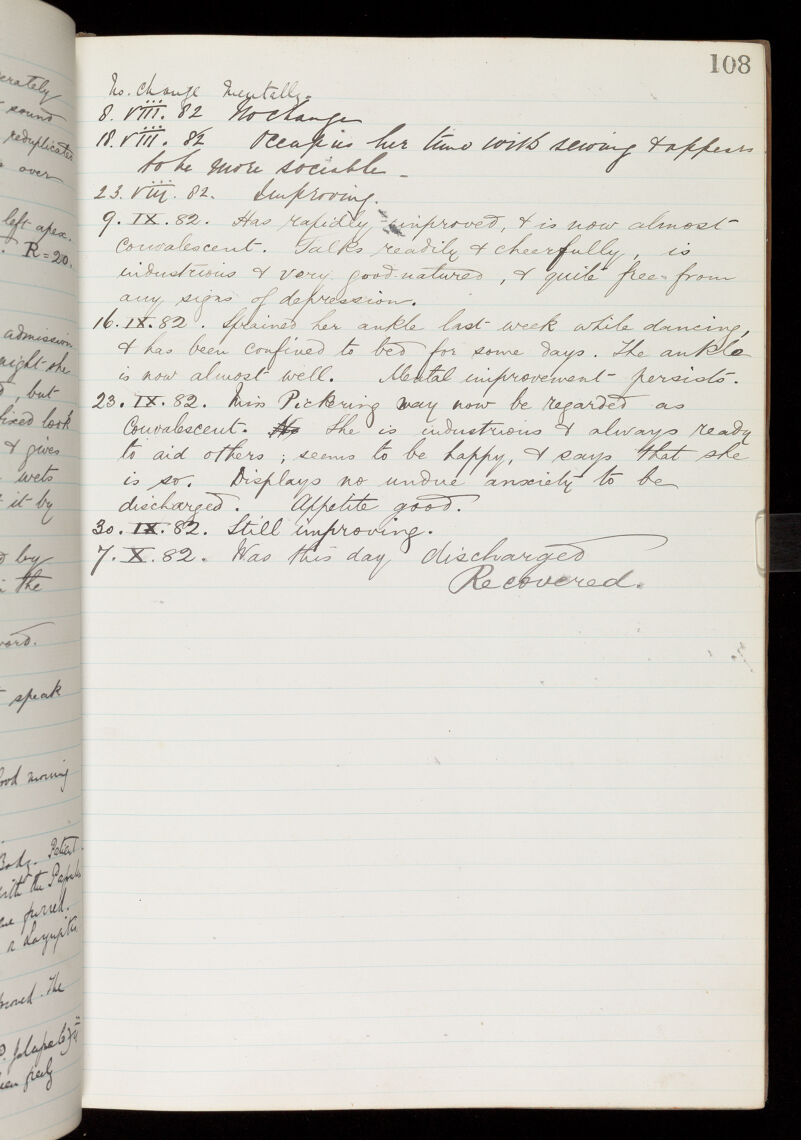 erately
sound
reduplicated
over
left apex.
R = 20.
admission
night she
, but
fixed look
& gives
wets
it by
by
the
speak
good morning
Body. Patient
with the
furred.
The
freely
108
No. change mentally.
8. VIII. 82 No change
18. VIII. 82 Occupies her time with sewing & appears
to be more sociable_
23. VIII. 82. Improving.
9. IX. 82. Has rapidly improved, & is now almost
convalescent. Talks readily & cheerfully, is
industrious & very good-natured, & quite free from
any signs of depression.
16. IX. 82. Sprained her ankle last week while dancing,
& has been confined to bed for some days. The ankle
is now almost well. Mental improvement persists.
23. IX. 82. Miss Pickering may now be regarded as
Convalescent. She is industrious & always ready
to aid others; seems to be happy, & says that she
is so. Displays no undue anxiety to be
discharged. Appetite good.
30. IX. 82. Still improving.
7. X. 82. Was this day discharged
Recovered.